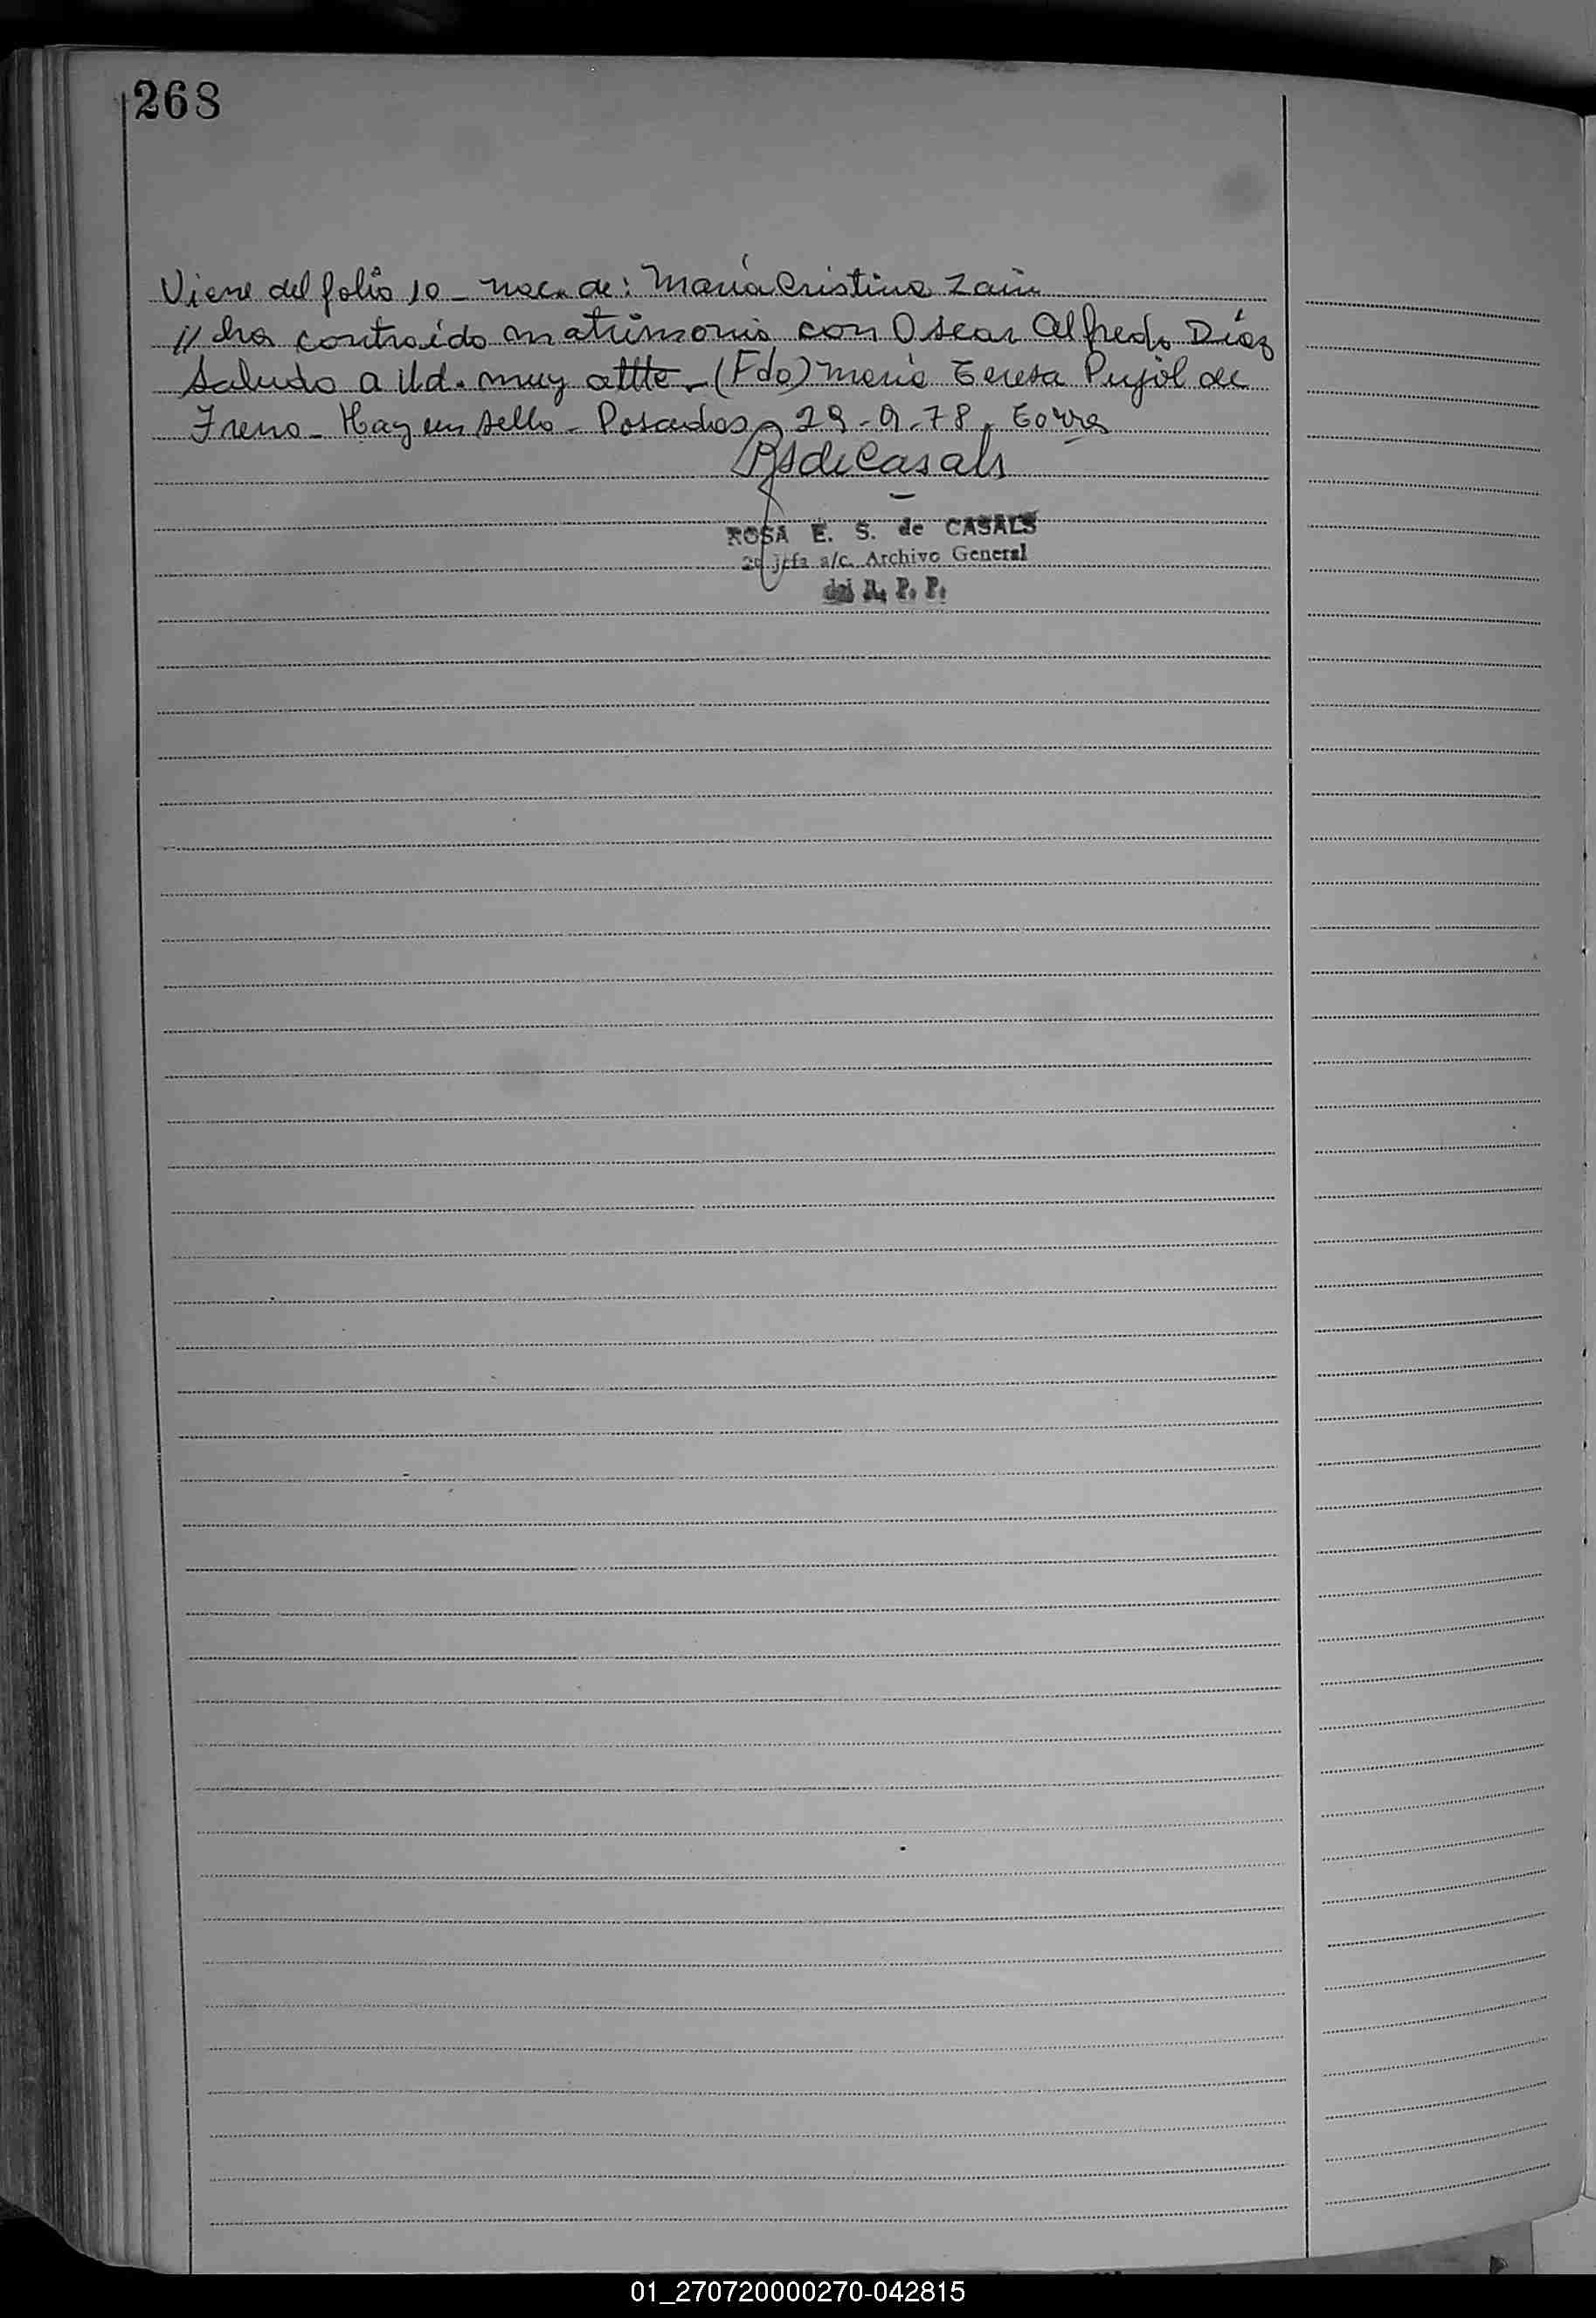 268
Viene del folio 10 - nac. de: María Cristina Zain
// ha contraido matrimonio con Oscar Alfredo Díaz
Saludo a Ud. muy attte - (Fdo) María Teresa Pujol de
Freno - Hay un sello - Posadas, 29-9-78.
RSdeCasals
ROSA E. S. de CASALS
2a Jefa a/c. Archivo General
del R. P. P.
01_270720000270-042815